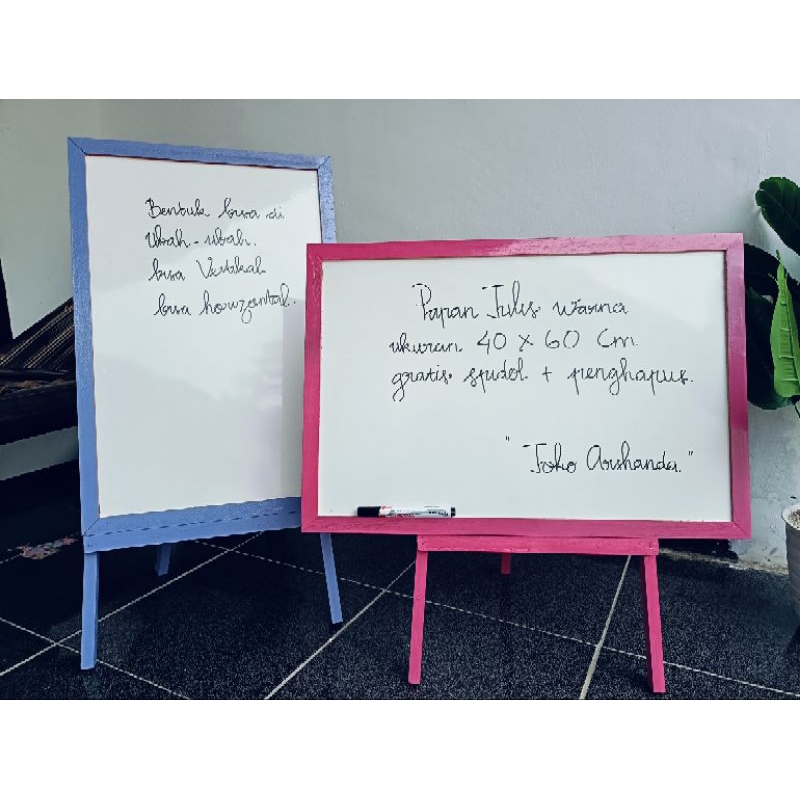 Bentuk bisa di
Ubah - ubah.
bisa Vertikal
bisa horizontal.
Papan Tulis warna
ukuran 40 x 60 Cm
gratis spidol + penghapus.
"Toko Arshanda."